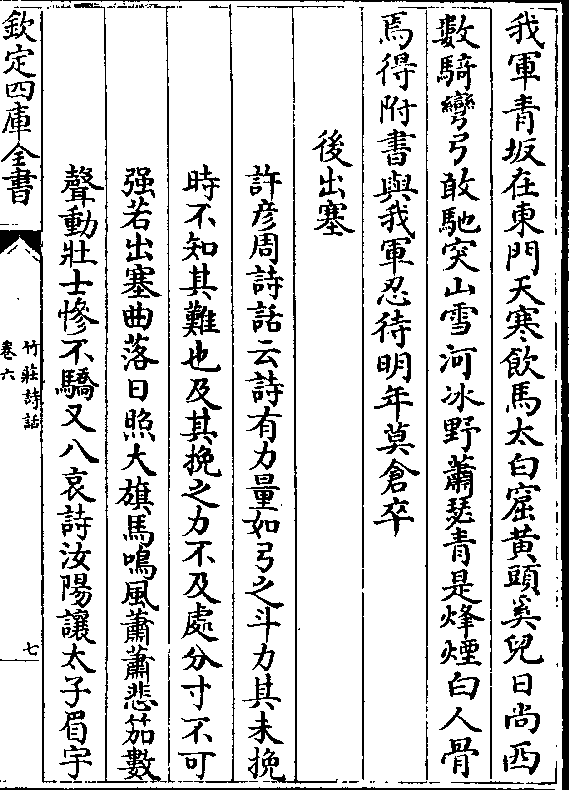 我軍青坂在東門天寒飲馬太白窟黃頭奚兒日尚西
數騎彎弓敢馳突山雪河冰野蕭瑟青是烽煙白人骨
焉得附書與我軍忍待明年莫倉卒
後出塞
許彦周詩話云詩有力量如弓之斗力其未挽
時不知其難也及其挽之力不及處分寸不可
强若出塞曲落日照大旗馬鳴風蕭蕭悲笳數
聲動壯士慘不驕又八哀詩汝陽讓太子眉宇
欽定四庫全書
竹莊詩話
卷六
七